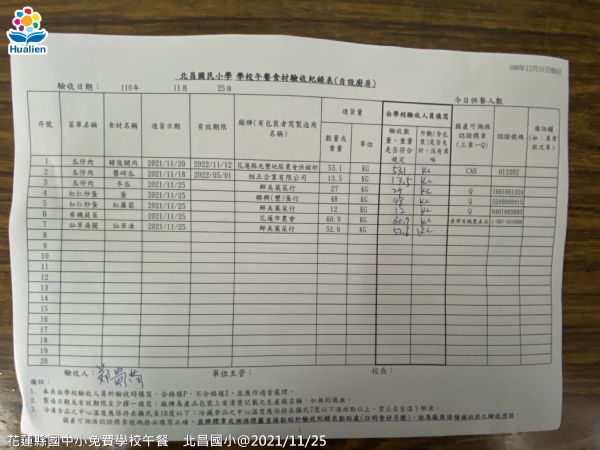 Hualien
109年12月31日修訂
北昌國民小學 學校午餐食材驗收紀錄表(自設廚房)
驗收日期： 110年 11月 25日
今日供餐人數
序號 菜單名稱 食材名稱 進貨日期 有效期限 廠牌(有包裝者寫製造商名稱) 進貨量 數量或重量 單位 由學校驗收人員填寫 驗收數量、重量是否符合規定 外觀(含包裝)是否良好、沒有異味 國產可溯源認證標章(三章一Q) 認證號碼 備註欄
1 瓜仔肉 豬後腿肉 2021/11/20 2022/11/12 花蓮縣光豐地區農會供銷部 53.1 KG 53.1 CAS 012202
2 瓜仔肉 醬碎瓜 2021/11/18 2022/05/01 桂正企業有限公司 13.5 KG 13.5
3 瓜仔肉 冬瓜 2021/11/25 鮮美蔬菜行 27 KG Q 1601001324
4 紅仁炒蛋 蛋 2021/11/25 聯興(豐)蛋行 48 KG 48 Q
5 紅仁炒蛋 紅蘿蔔 2021/11/25 鮮美蔬菜行 12 KG 12 Q
6 有機蔬菜 2021/11/25 花蓮市農會 60.9 KG 60.9 臺灣有機農產品
7 仙草湯圓 仙草凍 2021/11/25 鮮美蔬菜行 52.6 KG 52.6
8
9
10
11
12
13
14
15
16
17
18
19
20
驗收人： 單位主管： 校長：
備註：
1. 本表由學校驗收人員於驗收時填寫，合格填P，不合格填X，並應作適當處理。
2. 製造日期及有效期限至少擇一填寫；廠牌為產品包裝上有清楚記載之生產廠名稱，如無則填無。
3. 冷凍食品之中心溫度應保持在攝氏負18度以下；冷藏食品之中心溫度應保持在攝氏7度以下凍結點以上，禁止在室溫下解凍。
花蓮縣國中小免費學校午餐 北昌國小@2021/11/25